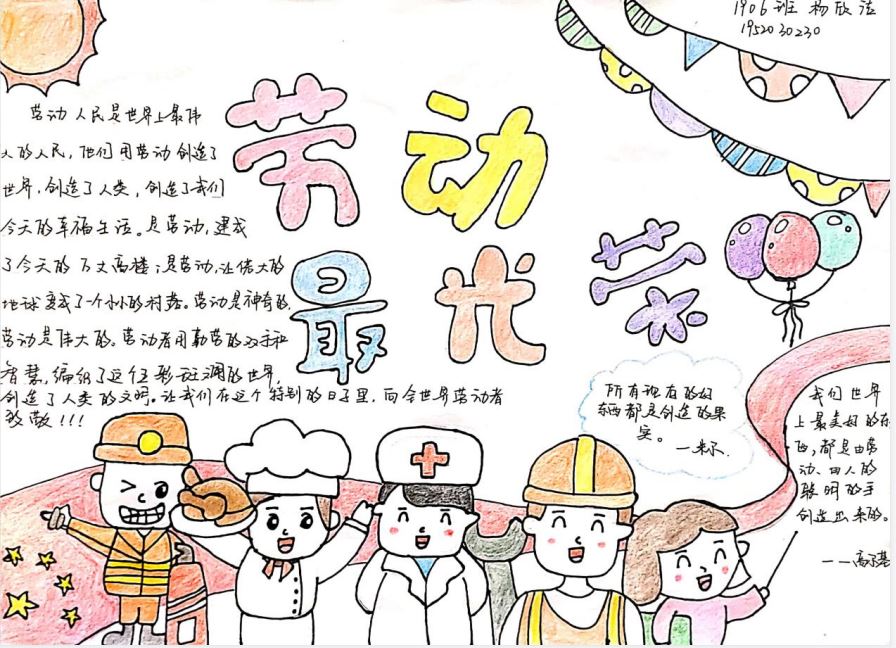 1906班 杨欣洁
1952030230
劳动最光荣
劳动人民是世界上最伟
大的人民，他们用劳动创造了
世界，创造了人类，创造了我们
今天的幸福生活。是劳动，建成
了今天的万丈高楼；是劳动，让偌大的
地球变成了一个小小的村落。劳动是神奇的，
劳动是伟大的。劳动者用勤劳的双手和
智慧，编织了这个五彩斑斓的世界，
创造了人类的文明。让我们在这个特别的日子里，向全世界劳动者
致敬！！！
所有现有的好
东西都是创造的果
实。
—米尔.
我们世界
上最美好的东
西，都是由劳
动、由人的
聪明的手
创造出来的。
——高尔基